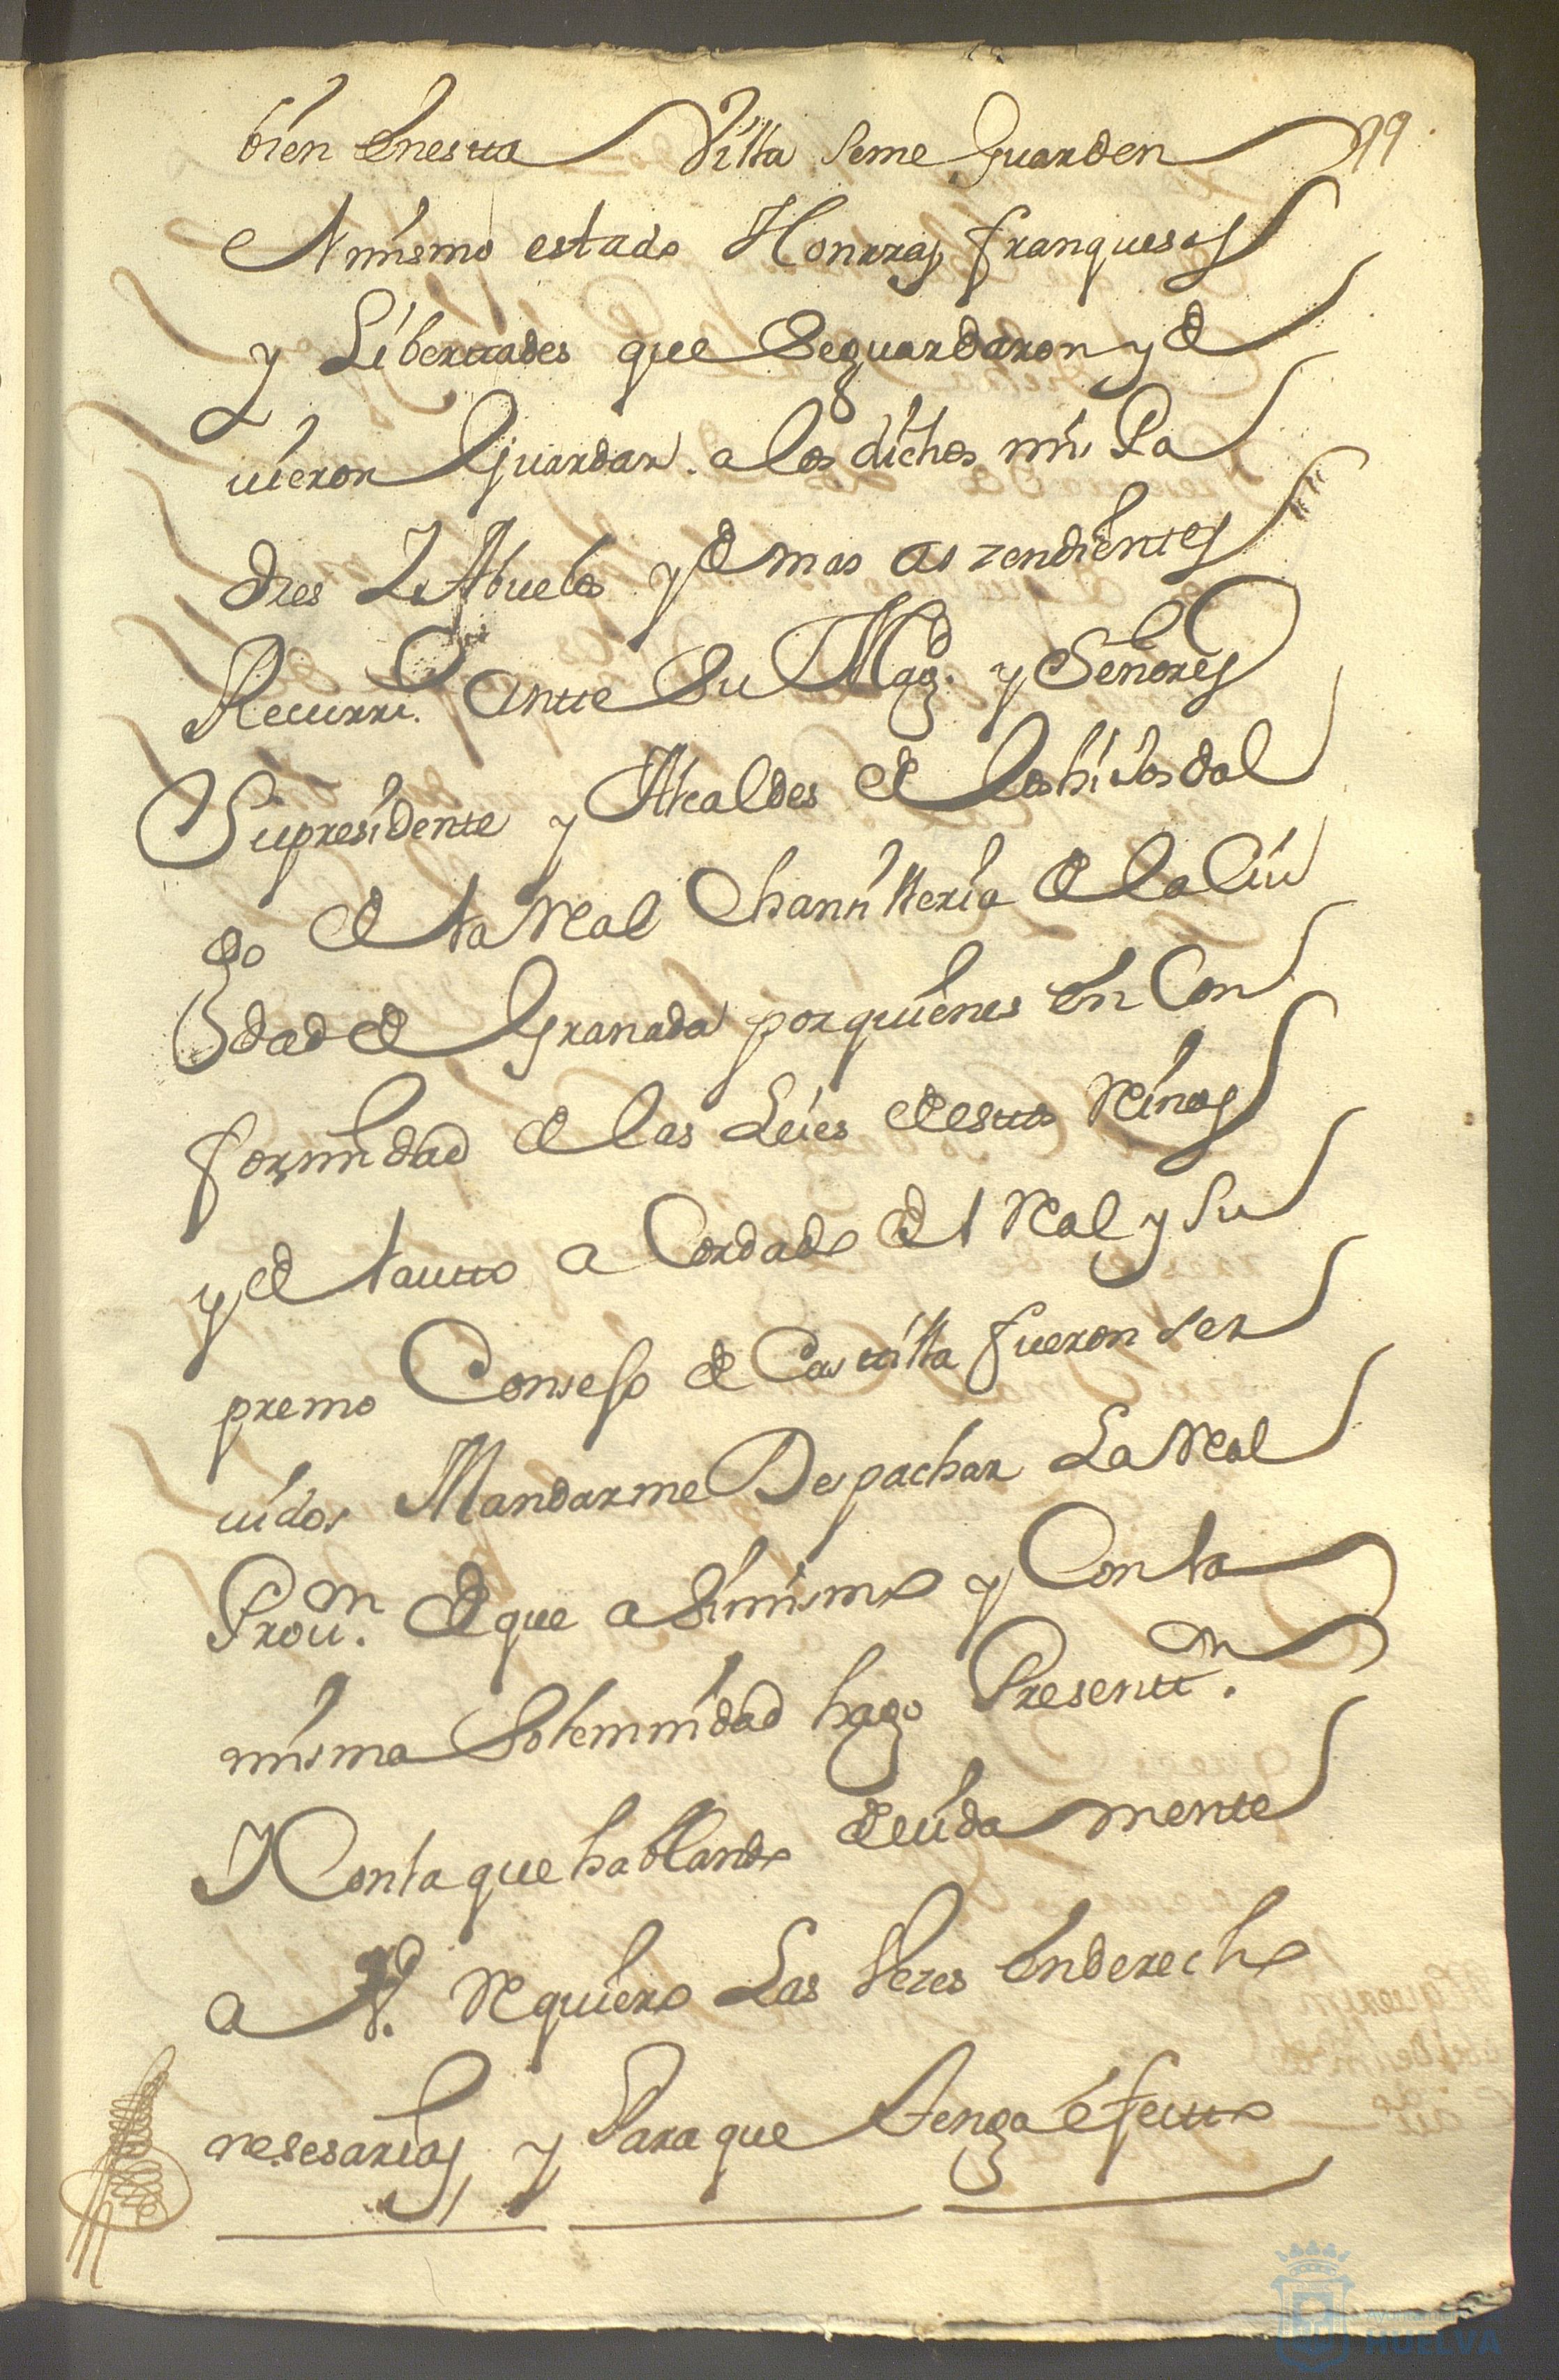 bien enesta Villa seme Guarden 99
el mismo estado Honrras, franquesas
y Libertades que Seguardaron y de
uieron Guardar. a los dichos mis Pa
dres Y Abuelos y demas aszendientes
Recurri. ante Su Magd. y Señores
Supresidente y Alcaldes de los hijosdal
go de la Real Chanzilleria de la Ciu
dad de Granada por quienes en Con
formidad de las Leies destos Reinos
y el auto a Cordado del Real y Su
premo Consejo de Castilla fueron ser
uidos Mandarme Despachar La Real
Proun. de que a Simismo y Con la
misma Solemnidad hago Presenttn.
Y Con la que hablando deuida mente
a V. Requiero Las Vezes en derecho
nesesarias, y Para que tenga efecto
Ayuntamiento de
HUELVA